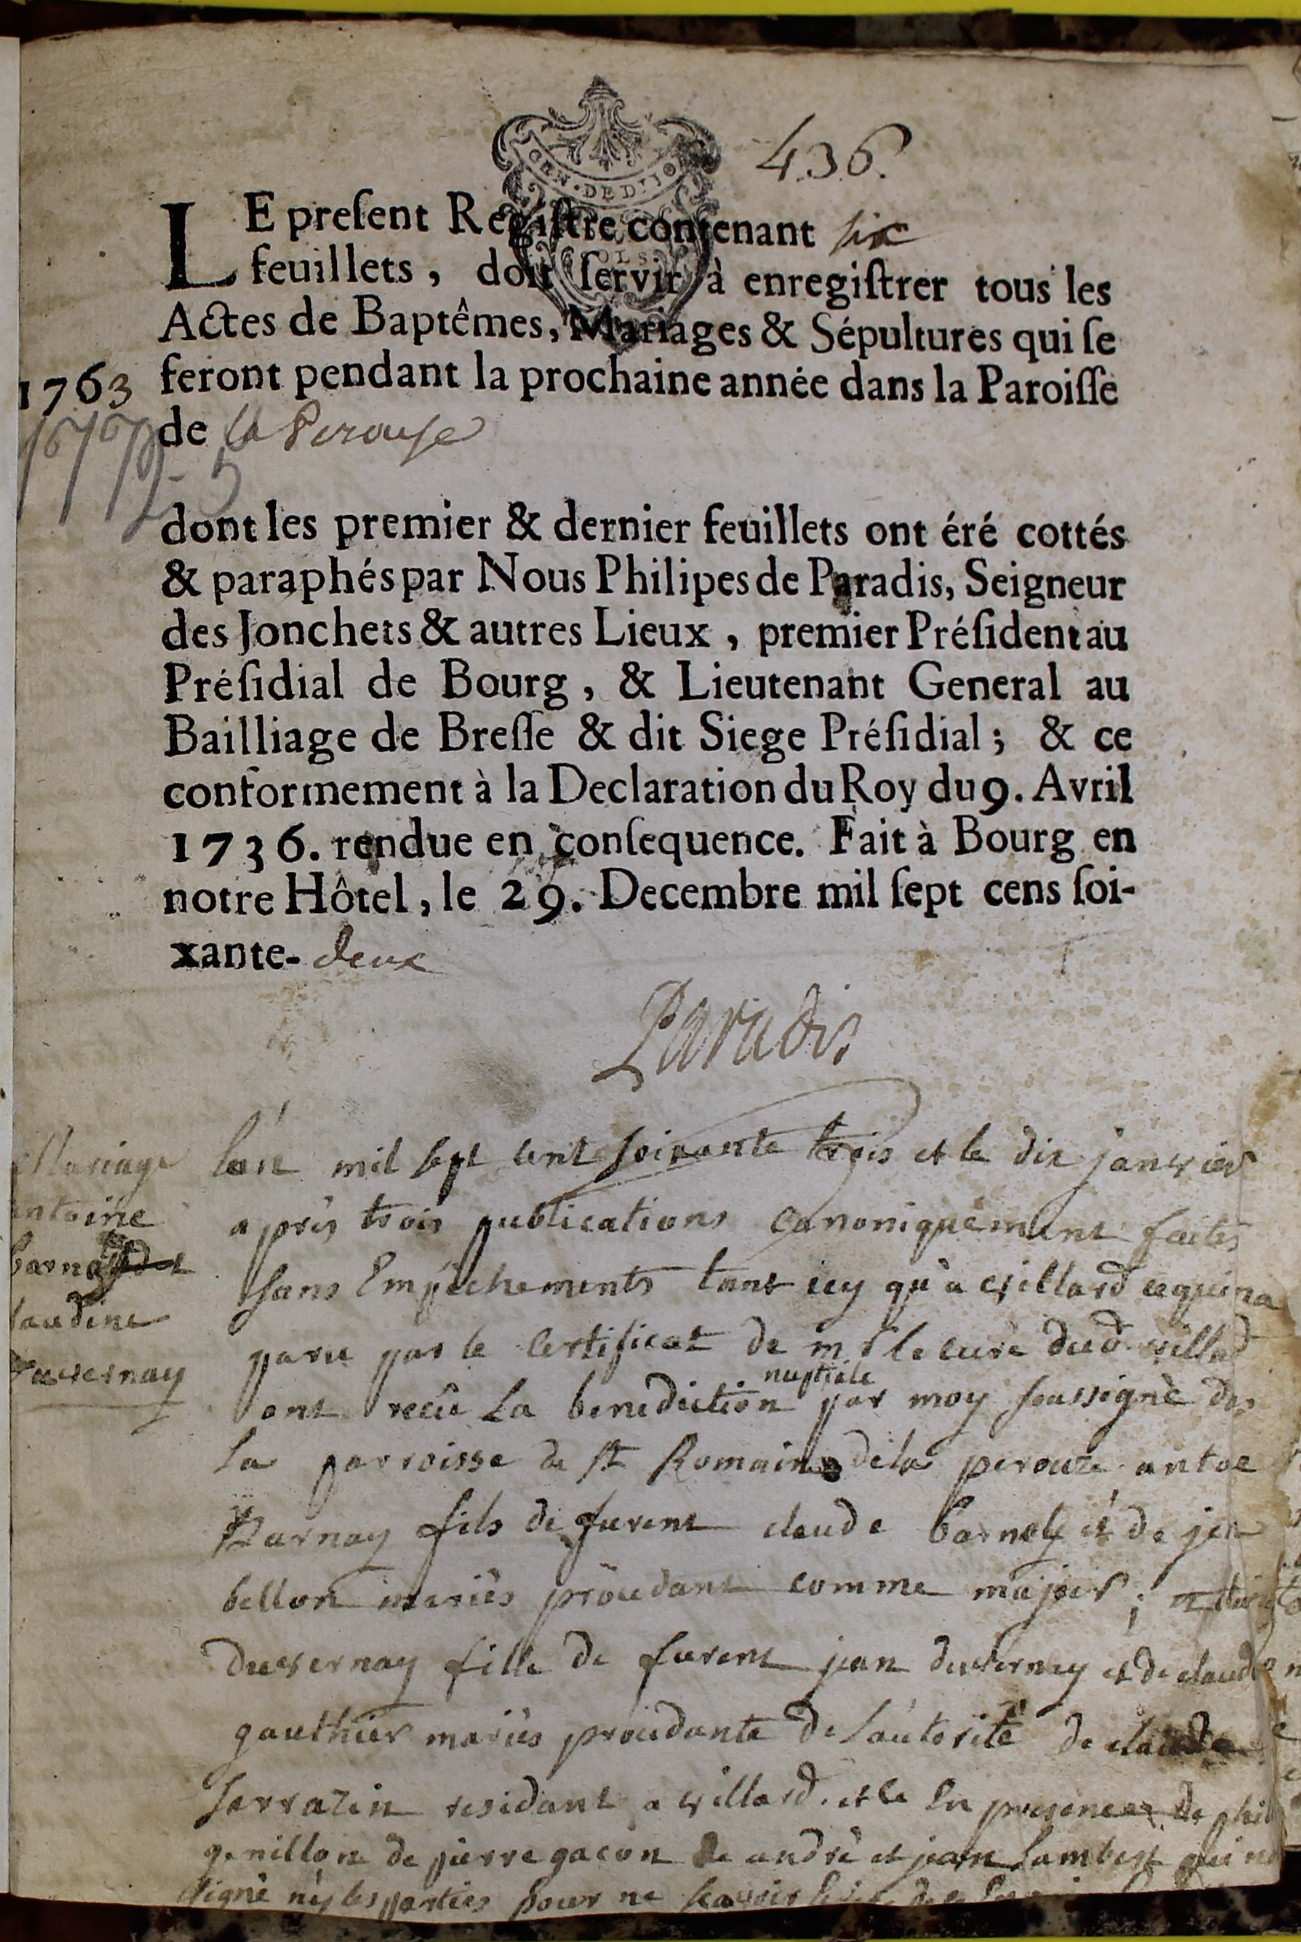 GEN · DE DIJO
436.
LE preſent Regiſtre contenant six
feuillets, doit ſervir à enregiſtrer tous les
Actes de Baptêmes, Mariages & Sépultures qui ſe
1763 feront pendant la prochaine année dans la Paroiſſe
de la Perouse
dont les premier & dernier feuillets ont éré cottés
& paraphés par Nous Philipes de Paradis, Seigneur
des Jonchets & autres Lieux, premier Préſident au
Préſidial de Bourg, & Lieutenant General au
Bailliage de Breſſe & dit Siege Préſidial; & ce
conformement à la Declaration du Roy du 9. Avril
1736. rendue en conſequence. Fait à Bourg en
notre Hôtel, le 29. Decembre mil ſept cens ſoi-
xante-deux
Paradis
Mariage
antoine
barnay
laudine
duvernay
L'an mil sept cent soixante trois et le dix janvier
après trois publications canoniquement faites
sans Empêchements tant icy qu'a villard
paru par le Certificat de mr le curé dud villard
ont reçû La benediction nuptiale par moy soussigné dos
La parroisse de St Romain de la perouze antoe
Barnay fils de furent claude barnay et de
bellon mariés procédant comme majeur;
duvernay fille de furent jean duvernay et de claud
gauthier mariés procédante de l'autorité de claude
sarrazin residant a villard. et ce En presence de
genillon de pierre gacon de andré et jean Lambert qui
signé n'y les parties pour ne sçavoir